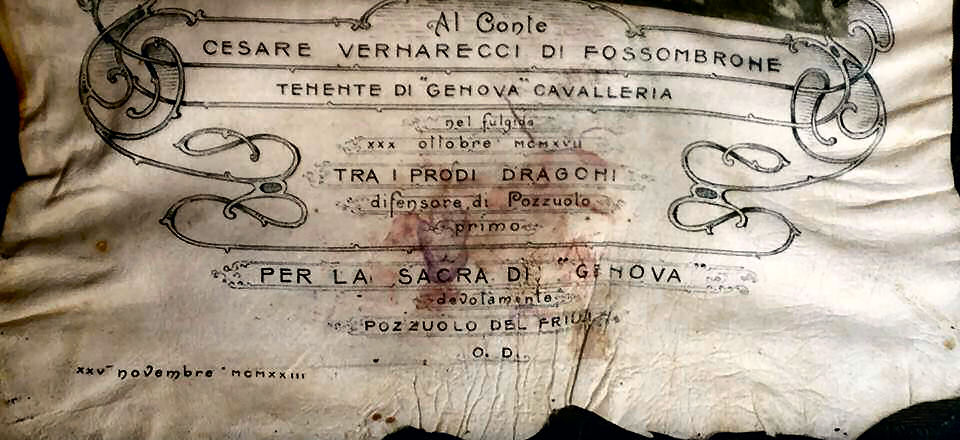 Al Conte
CESARE VERNARECCI DI FOSSOMBRONE
TENENTE DI "GENOVA" CAVALLERIA
nel fulgido
XXX ottobre MCMXVII
TRA I PRODI DRAGONI
difensore di Pozzuolo
primo
PER LA SACRA DI "GENOVA"
devotamente
POZZUOLO DEL FRIULI
O. D.
XXV novembre MCMXXIII